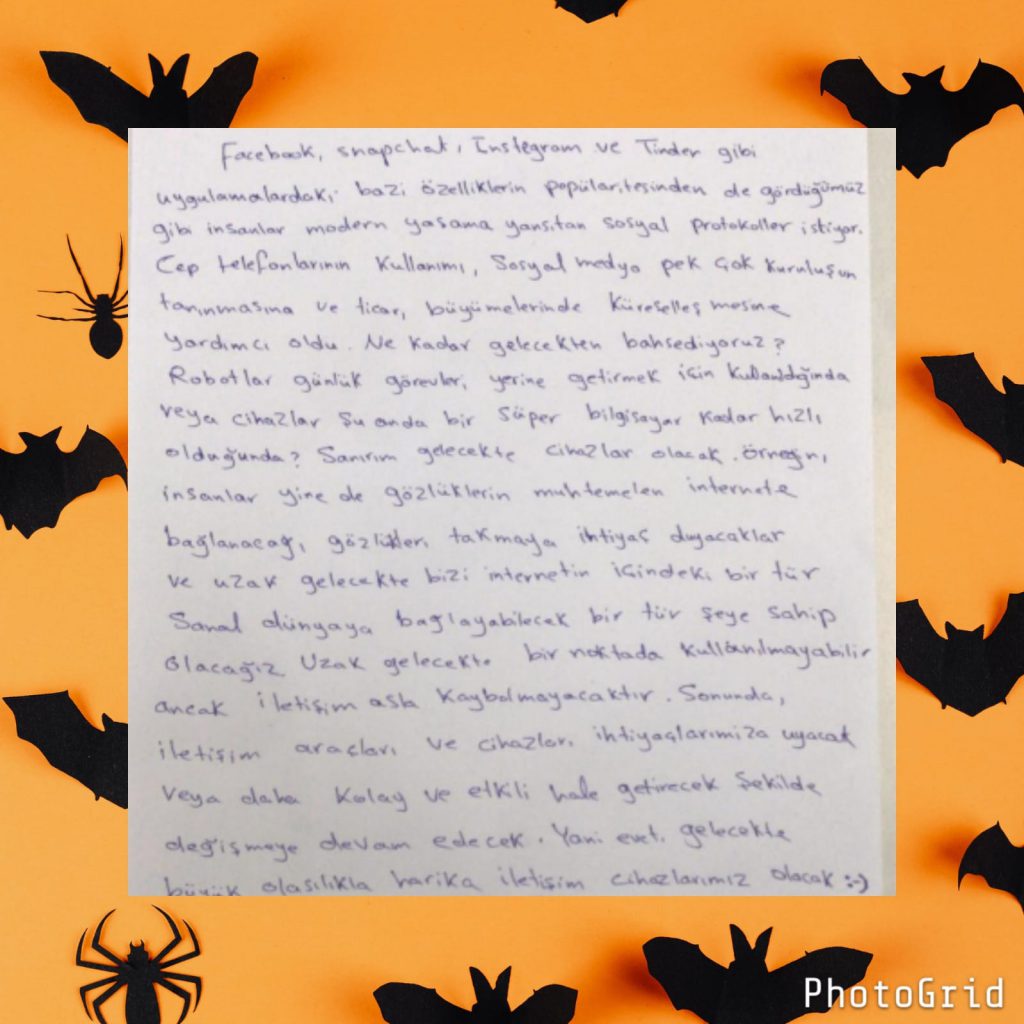 Facebook, snapchat, Instegram ve Tinder gibi
uygulamalardaki bazi özelliklerin popülaritesinden de gördüğümüz
gibi insanlar modern yasama yansıtan sosyal protokoller istiyor.
Cep telefonlarının kullanımı, Sosyal medya pek çok kuruluşun
tanınmasına ve ticari büyümelerinde küreselleşmesine
yardımcı oldu. Ne kadar gelecekten bahsediyoruz?
Robotlar günlük görevleri yerine getirmek için kullanıldığında
veya cihazlar şu anda bir süper bilgisayar kadar hızlı
olduğunda? Sanırım gelecekte cihazlar olacak. örneğin,
insanlar yine de gözlüklerin muhtemelen internete
bağlanacağı gözlükleri takmaya ihtiyaç duyacaklar
ve uzak gelecekte bizi internetin içindeki bir tür
Sanal dünyaya bağlayabilecek bir tür şeye sahip
olacağız Uzak gelecekte bir noktada kullanılmayabilir
ancak iletişim asla kaybolmayacaktır. Sonunda,
iletişim araçları ve cihazları ihtiyaçlarımıza uyacak
veya daha kolay ve etkili hale getirecek şekilde
değişmeye devam edecek. Yani evet, gelecekte
büyük olasılıkla harika iletişim cihazlarımız olacak :-)
PhotoGrid